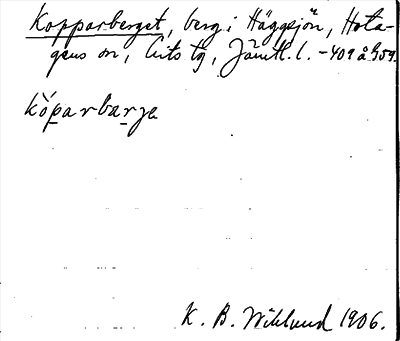 Kopparberget, berg i Häggsjön, Hota-
gens sn, Lits tg, Jämtl. l. -409 å 959.
kòparbarje
K. B. Wiklund 1906.